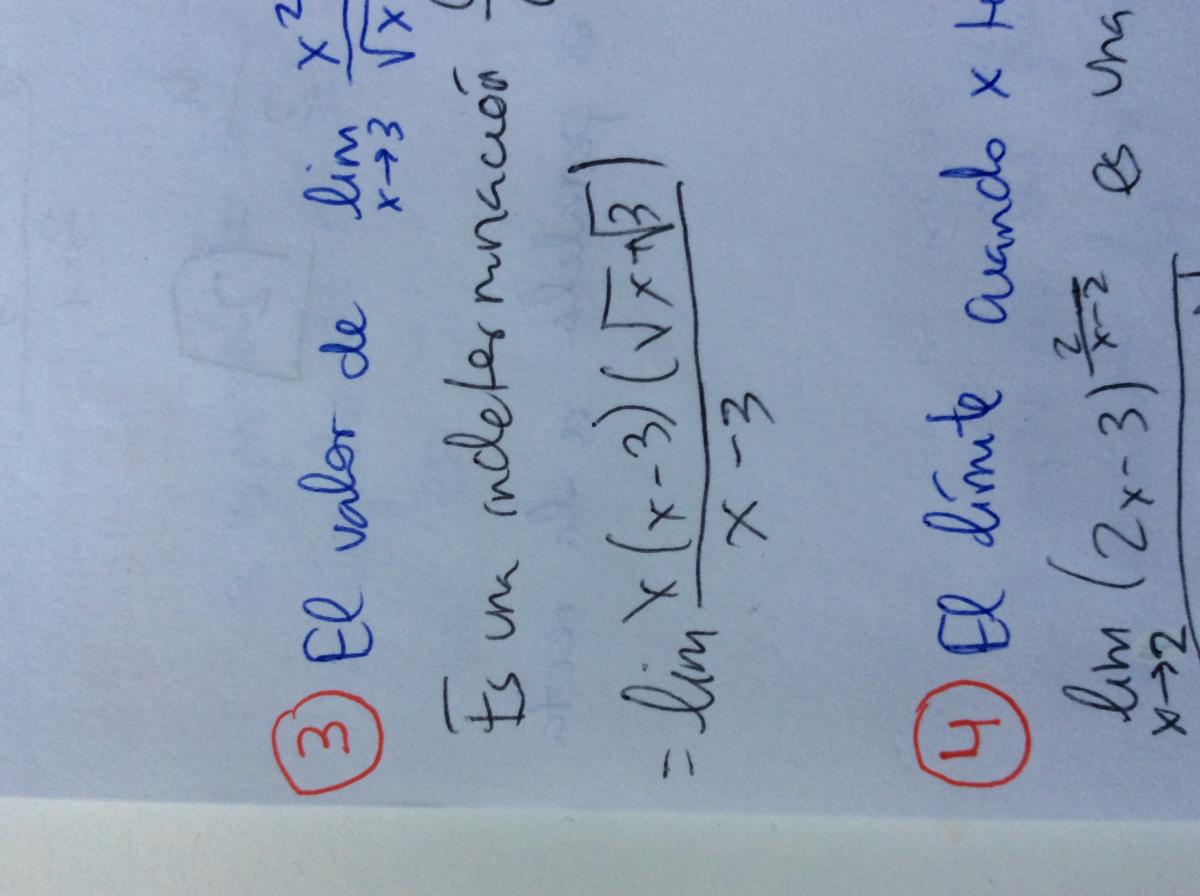 ③ El valor de lim x→3 x²/√x
Es una indeterminación
= lim x(x-3)(√x+√3)/(x-3)
④ El límite cuando x
lim x→2 (2x-3)^(2/(x-2)) es una